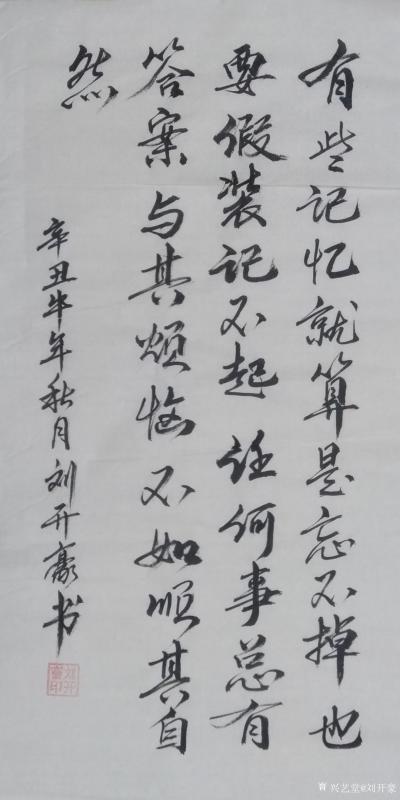 有些记忆就算是忘不掉也
要假装记不起任何事总有
答案与其烦恼不如顺其自
然
辛丑牛年秋月刘开豪书
刘开豪印
兴艺堂@刘开豪